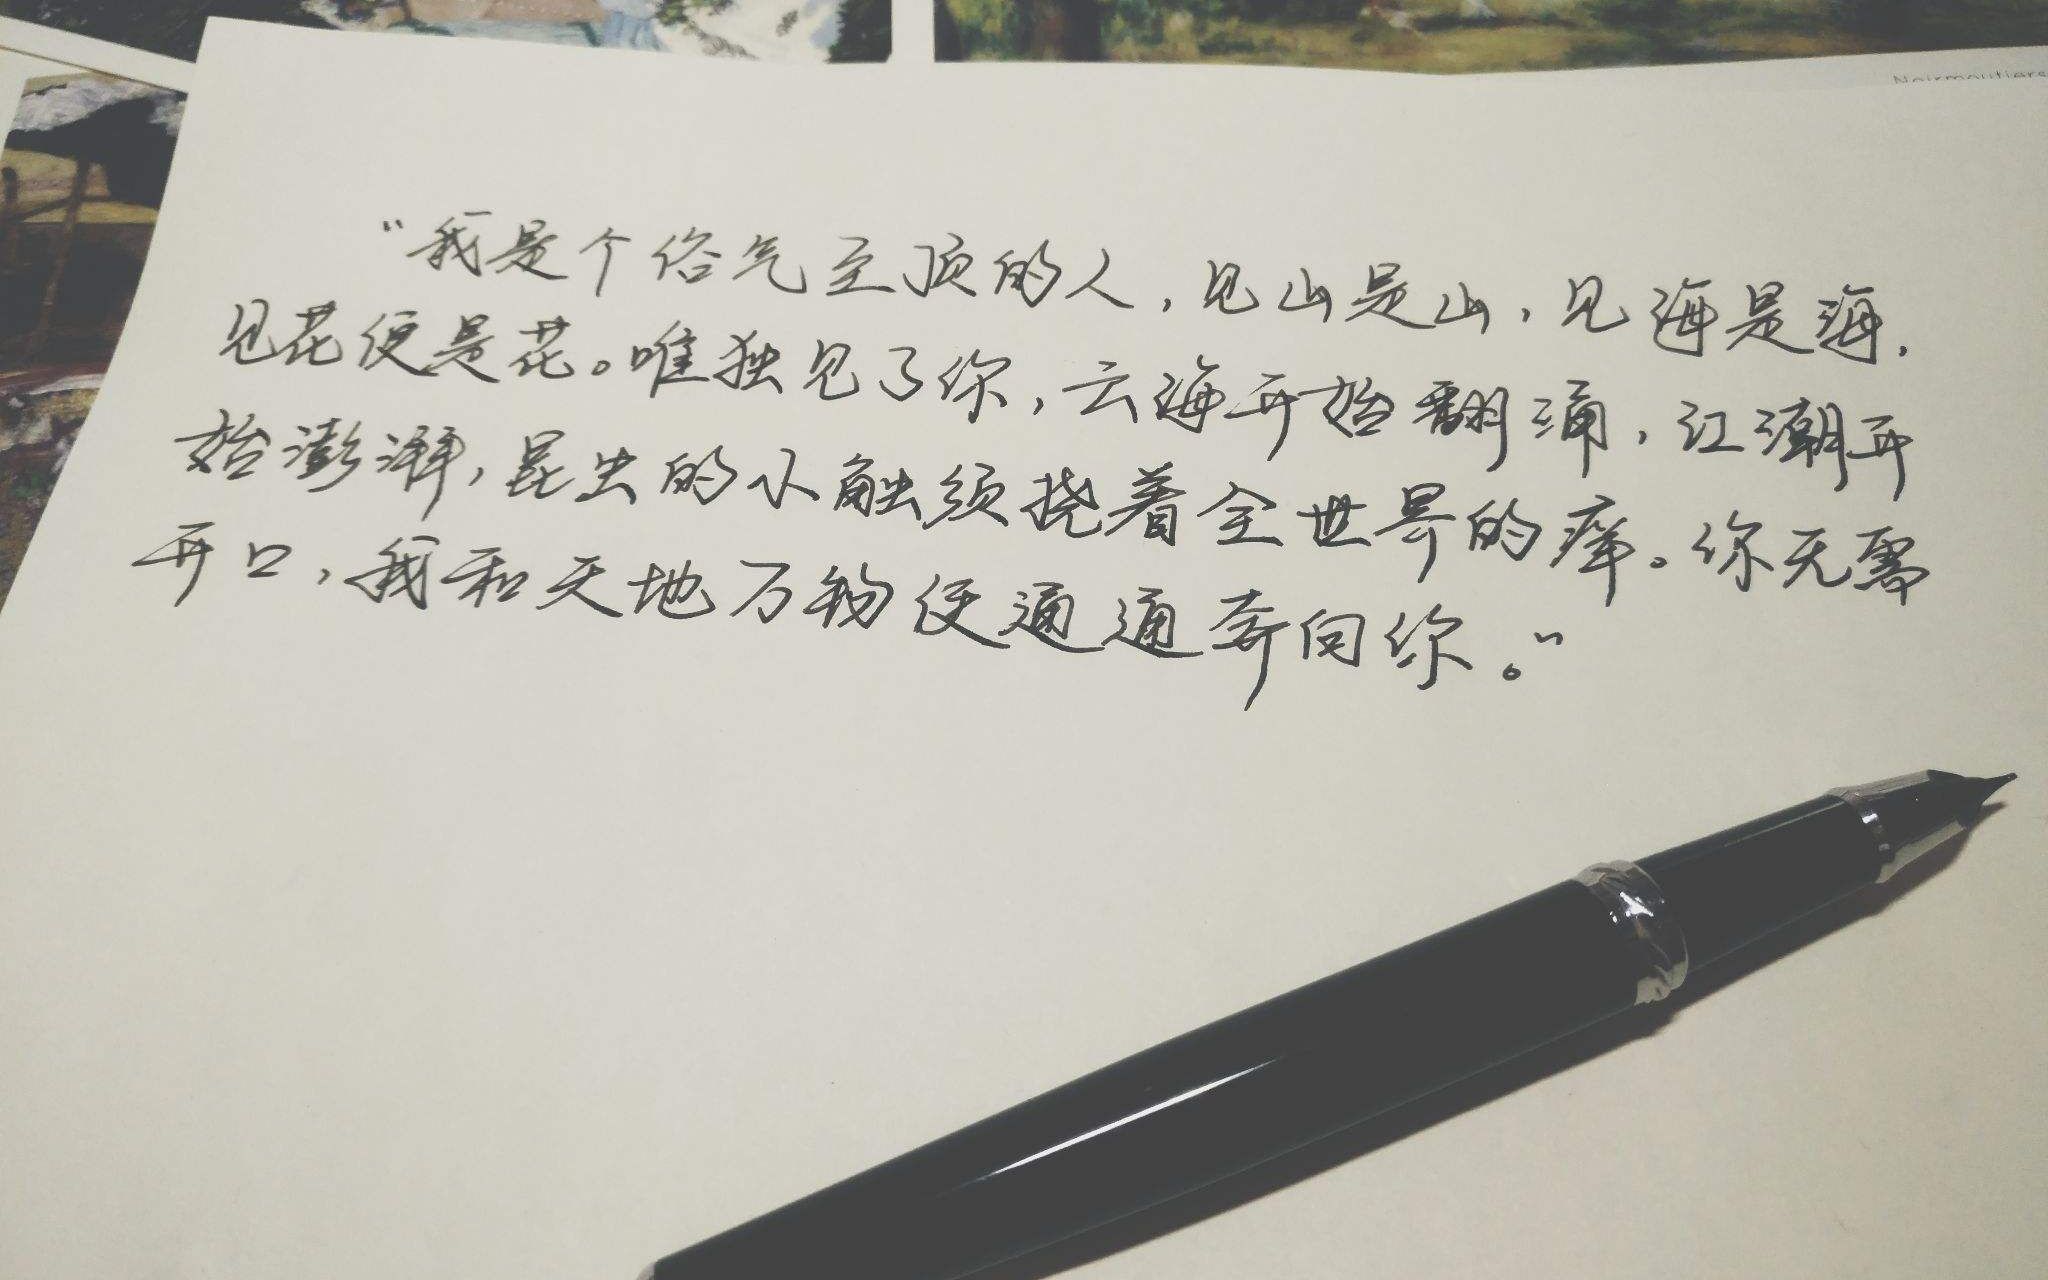 Noirmoutiers
“我是个俗气至顶的人，见山是山，见海是海，
见花便是花。唯独见了你，云海开始翻涌，江潮开
始澎湃，昆虫的小触须挠着全世界的痒。你无需
开口，我和天地万物便通通奔向你。”